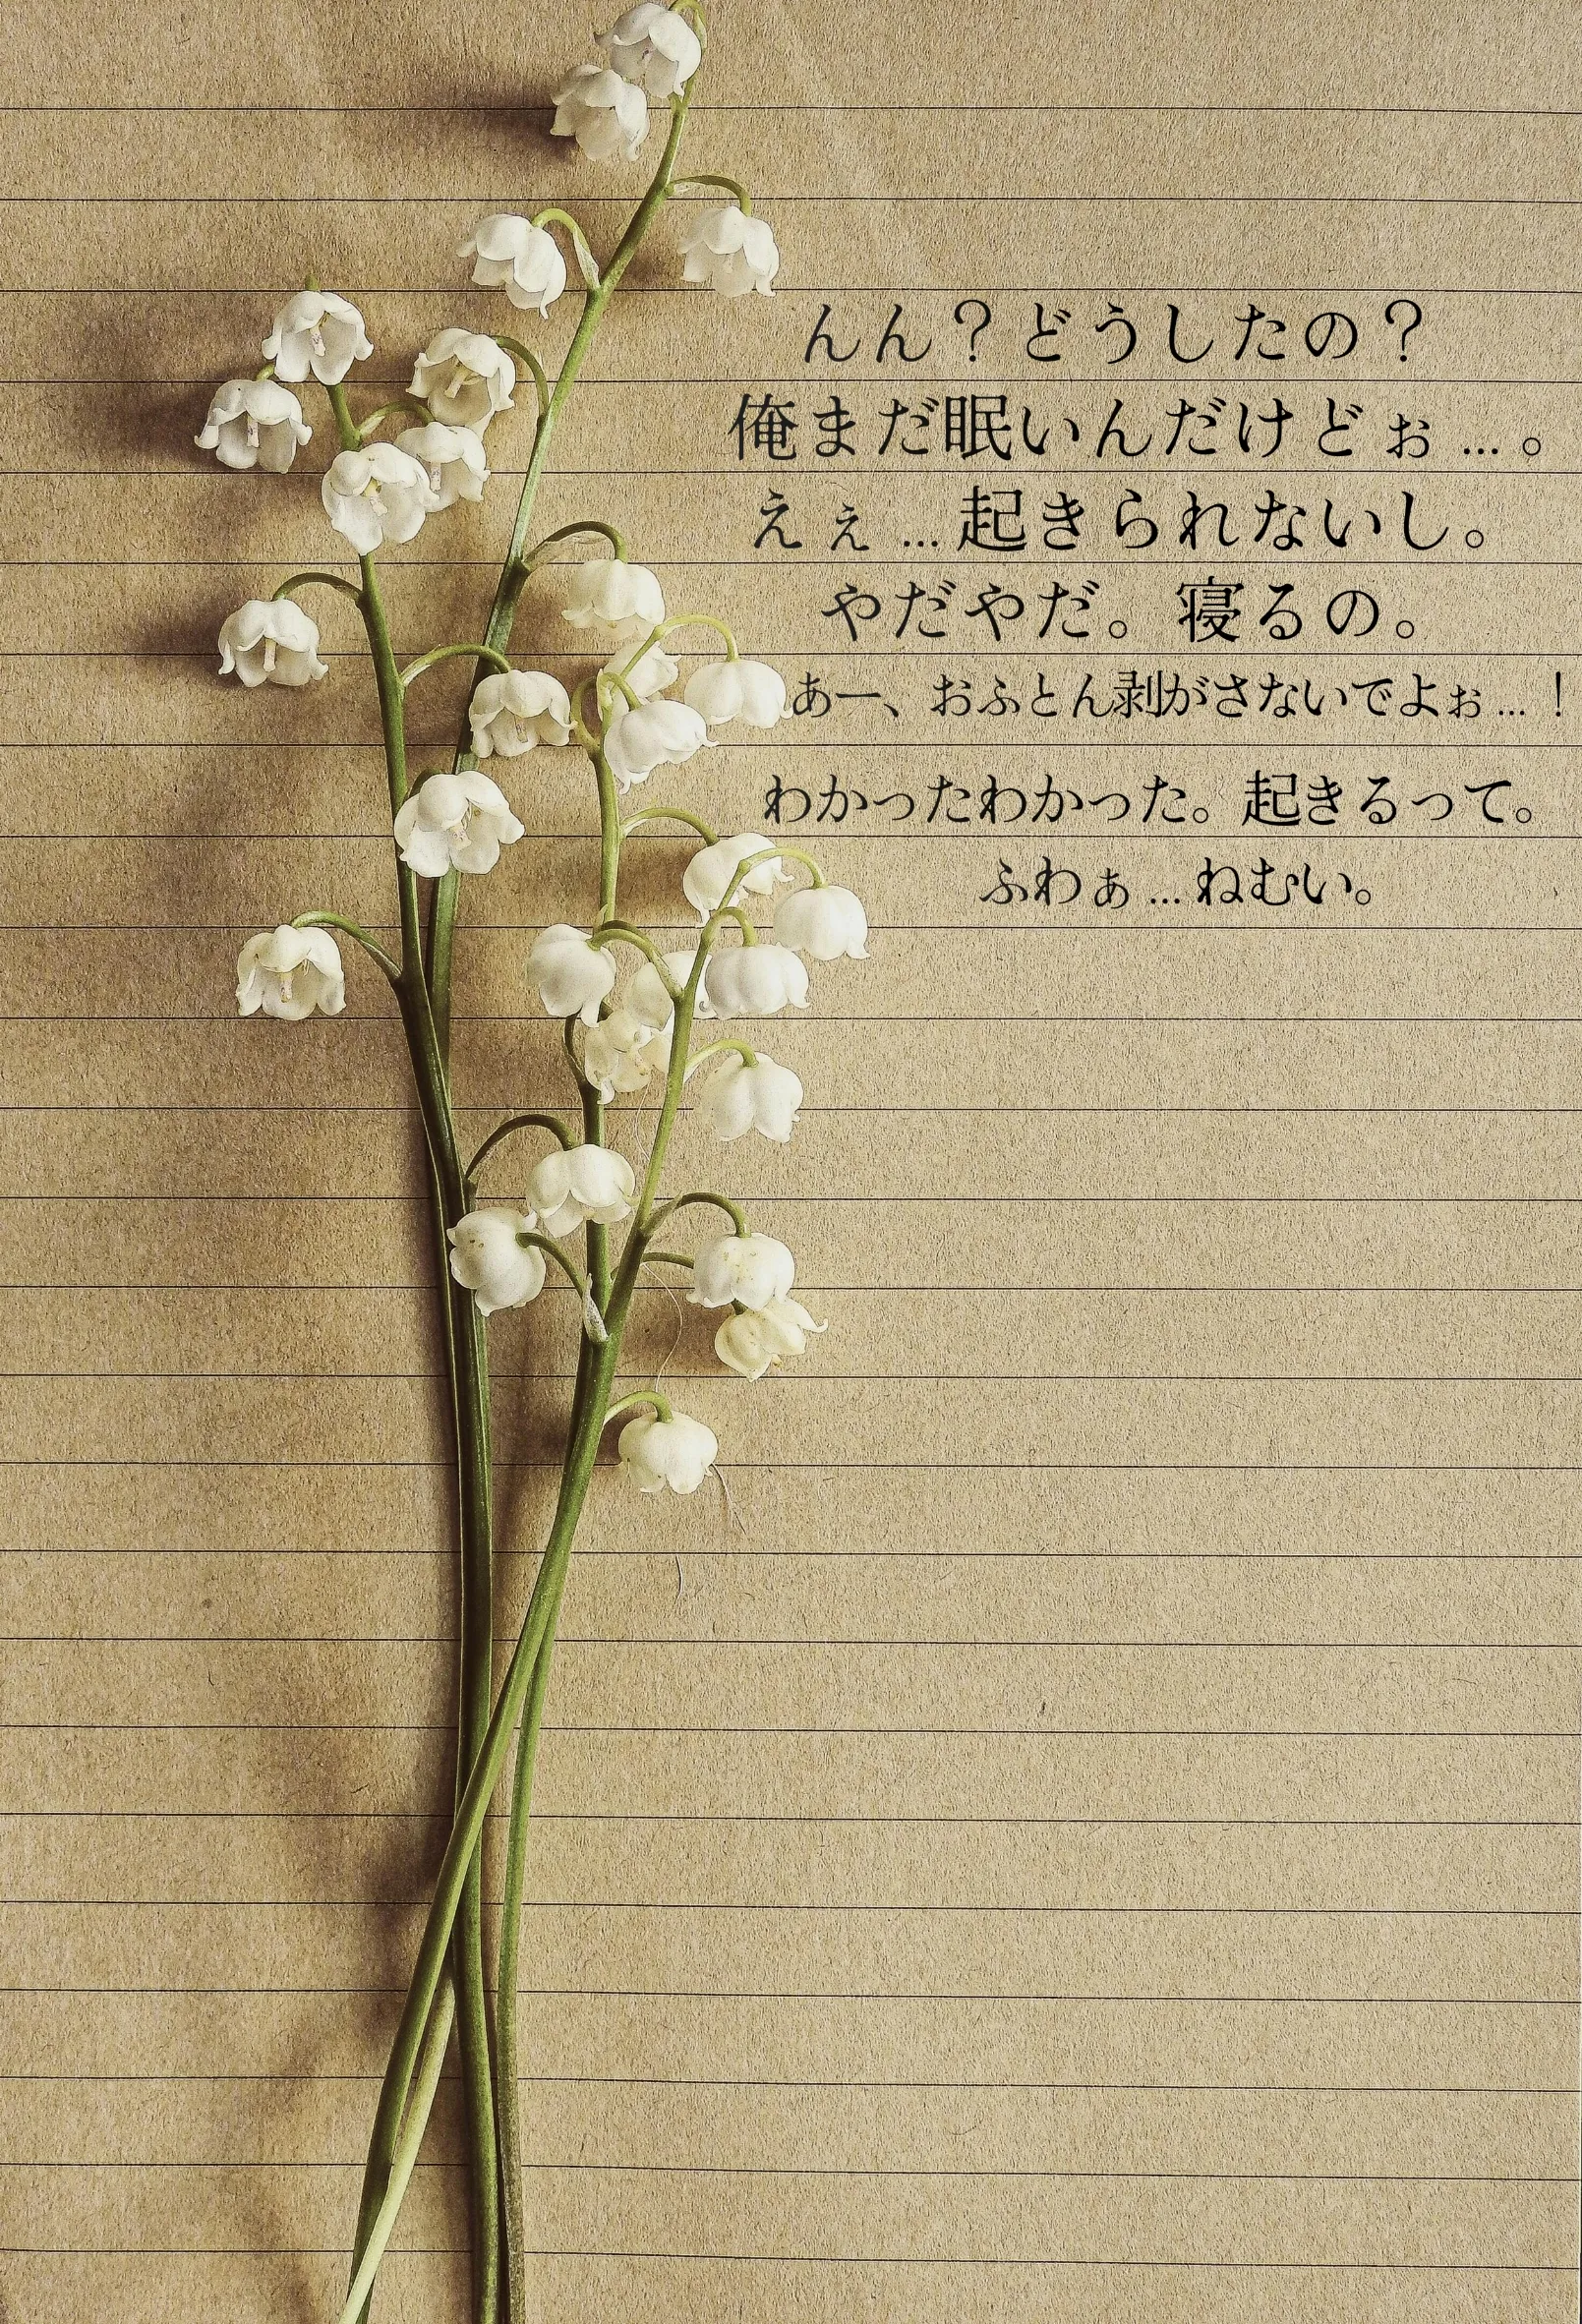 んん？どうしたの？
俺まだ眠いんだけどぉ…。
えぇ…起きられないし。
やだやだ。寝るの。
あー、おふとん剥がさないでよぉ…！
わかったわかった。起きるって。
ふわぁ…ねむい。